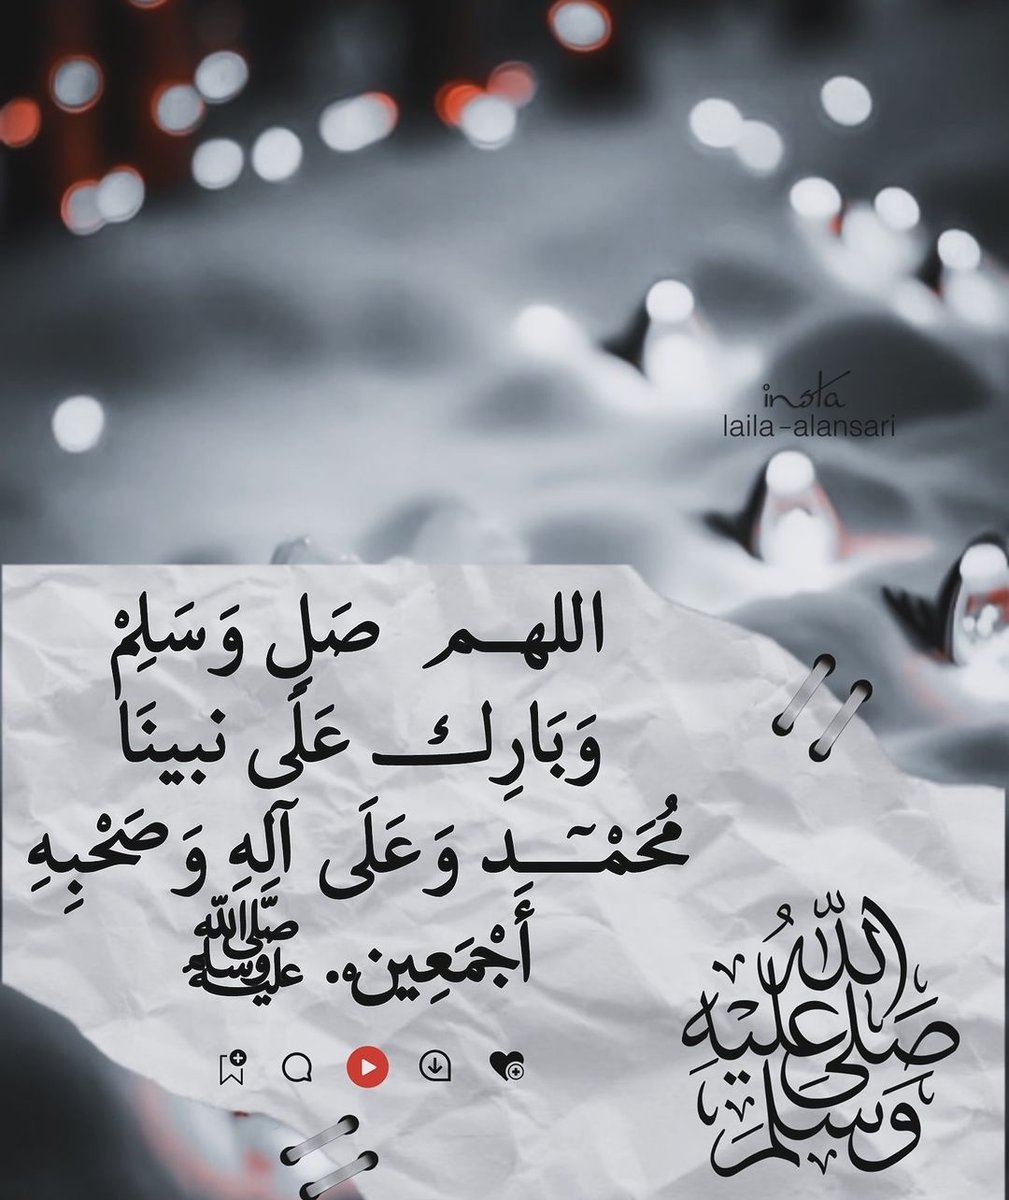 insta
laila-alansari
اللهم صَلِ وَسَلِمْ
وَبَارِك عَلَى نبينَا
مُحَمْــٓـدِ وَعَلَى آلِهِ وَصَحْبِهِ
أَجْمَعِين. ﷺ
صَلى اللهُ عليْهِ وَسلمَ